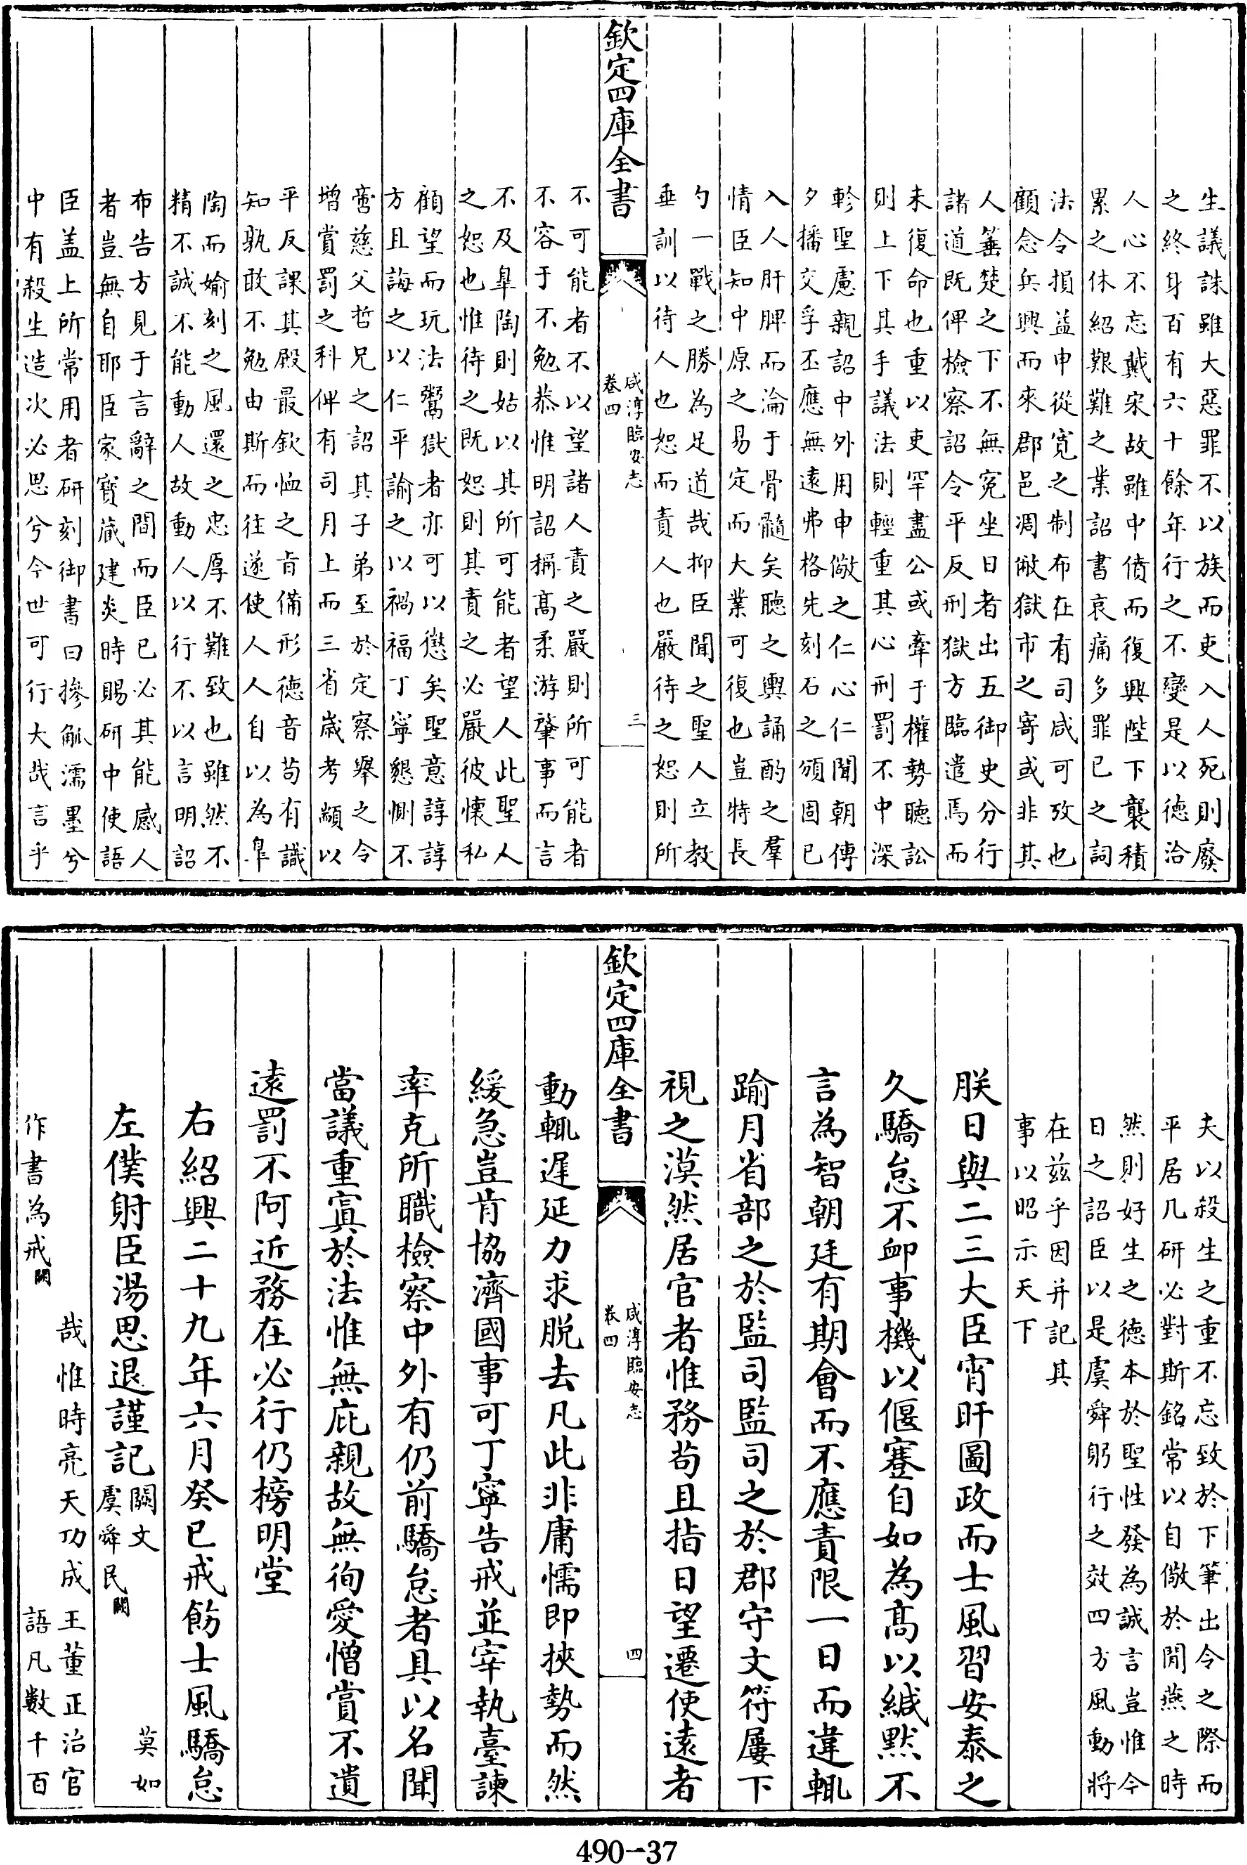 生議誅雖大惡罪不以族而吏入人死則廢
之終身百有六十餘年行之不變是以德洽
人心不忘戴宋故雖中僨而復興陛下襲積
累之休紹艱難之業詔書哀痛多罪已之詞
法令損益申從寛之制布在有司咸可攷也
顧念兵興而來郡邑凋敝獄市之寄或非其
人箠楚之下不無寃坐日者出五御史分行
諸道既俾檢察詔令平反刑獄方臨遣焉而
未復命也重以吏罕盡公或牽于權勢聽訟
則上下其手議法則輕重其心刑罰不中深
軫聖慮親詔中外用申儆之仁心仁聞朝傳
夕播交孚丕應無遠弗格先刻石之頒固已
入人肝脾而淪于骨髓矣聴之輿誦酌之羣
情臣知中原之易定而大業可復也豈特長
勺一戰之勝為足道哉抑臣聞之聖人立教
垂訓以待人也恕而責人也嚴待之恕則所
欽定四庫全書
咸淳臨安志
卷四
三
不可能者不以望諸人責之嚴則所可能者
不容于不勉恭惟明詔稱髙柔游肇事而言
不及臯陶則姑以其所可能者望人此聖人
之恕也惟待之既恕則其責之必嚴彼懷私
顧望而玩法鬻獄者亦可以懲矣聖意諄諄
方且誨之以仁平諭之以禍福丁寧懇惻不
啻慈父哲兄之詔其子弟至於定察舉之令
增賞罰之科俾有司月上而三省嵗考顓以
平反課其殿最欽恤之肯備形德音苟有識
知孰敢不勉由斯而往遂使人人自以為臯
陶而媮刻之風還之忠厚不難致也雖然不
精不誠不能動人故動人以行不以言明詔
布告方見于言辭之間而臣已必其能感人
者豈無自耶臣家寳蔵建炎時賜研中使語
臣盖上所常用者研刻御書曰摻觚濡墨兮
中有殺生造次必思兮今世可行大哉言乎
夫以殺生之重不忘致於下筆出令之際而
平居几研必對斯銘常以自儆於閒燕之時
然則好生之德本於聖性發為誠言豈惟今
日之詔臣以是虞舜躬行之效四方風動將
在兹乎因并記其
事以昭示天下
朕日與二三大臣宵旰圖政而士風習安泰之
久驕怠不卹事機以偃蹇自如為髙以緘黙不
言為智朝廷有期會而不應責限一日而違輒
踰月省部之於監司監司之於郡守文符屢下
視之漠然居官者惟務苟且指日望遷使遠者
欽定四庫全書
咸淳臨安志
卷四
四
動輒遲延力求脱去凡此非庸懦即挾勢而然
緩急豈肯協濟國事可丁寧告戒並宰執臺諫
率克所職檢察中外有仍前驕怠者具以名聞
當議重寘於法惟無庇親故無徇愛憎賞不遺
遠罰不阿近務在必行仍榜明堂
右紹興二十九年六月癸巳戒飭士風驕怠
左僕射臣湯思退謹記闕文 莫如
虞舜民闕
哉惟時亮天功成王董正治官
作書為戒闕 語凡數千百
490-37